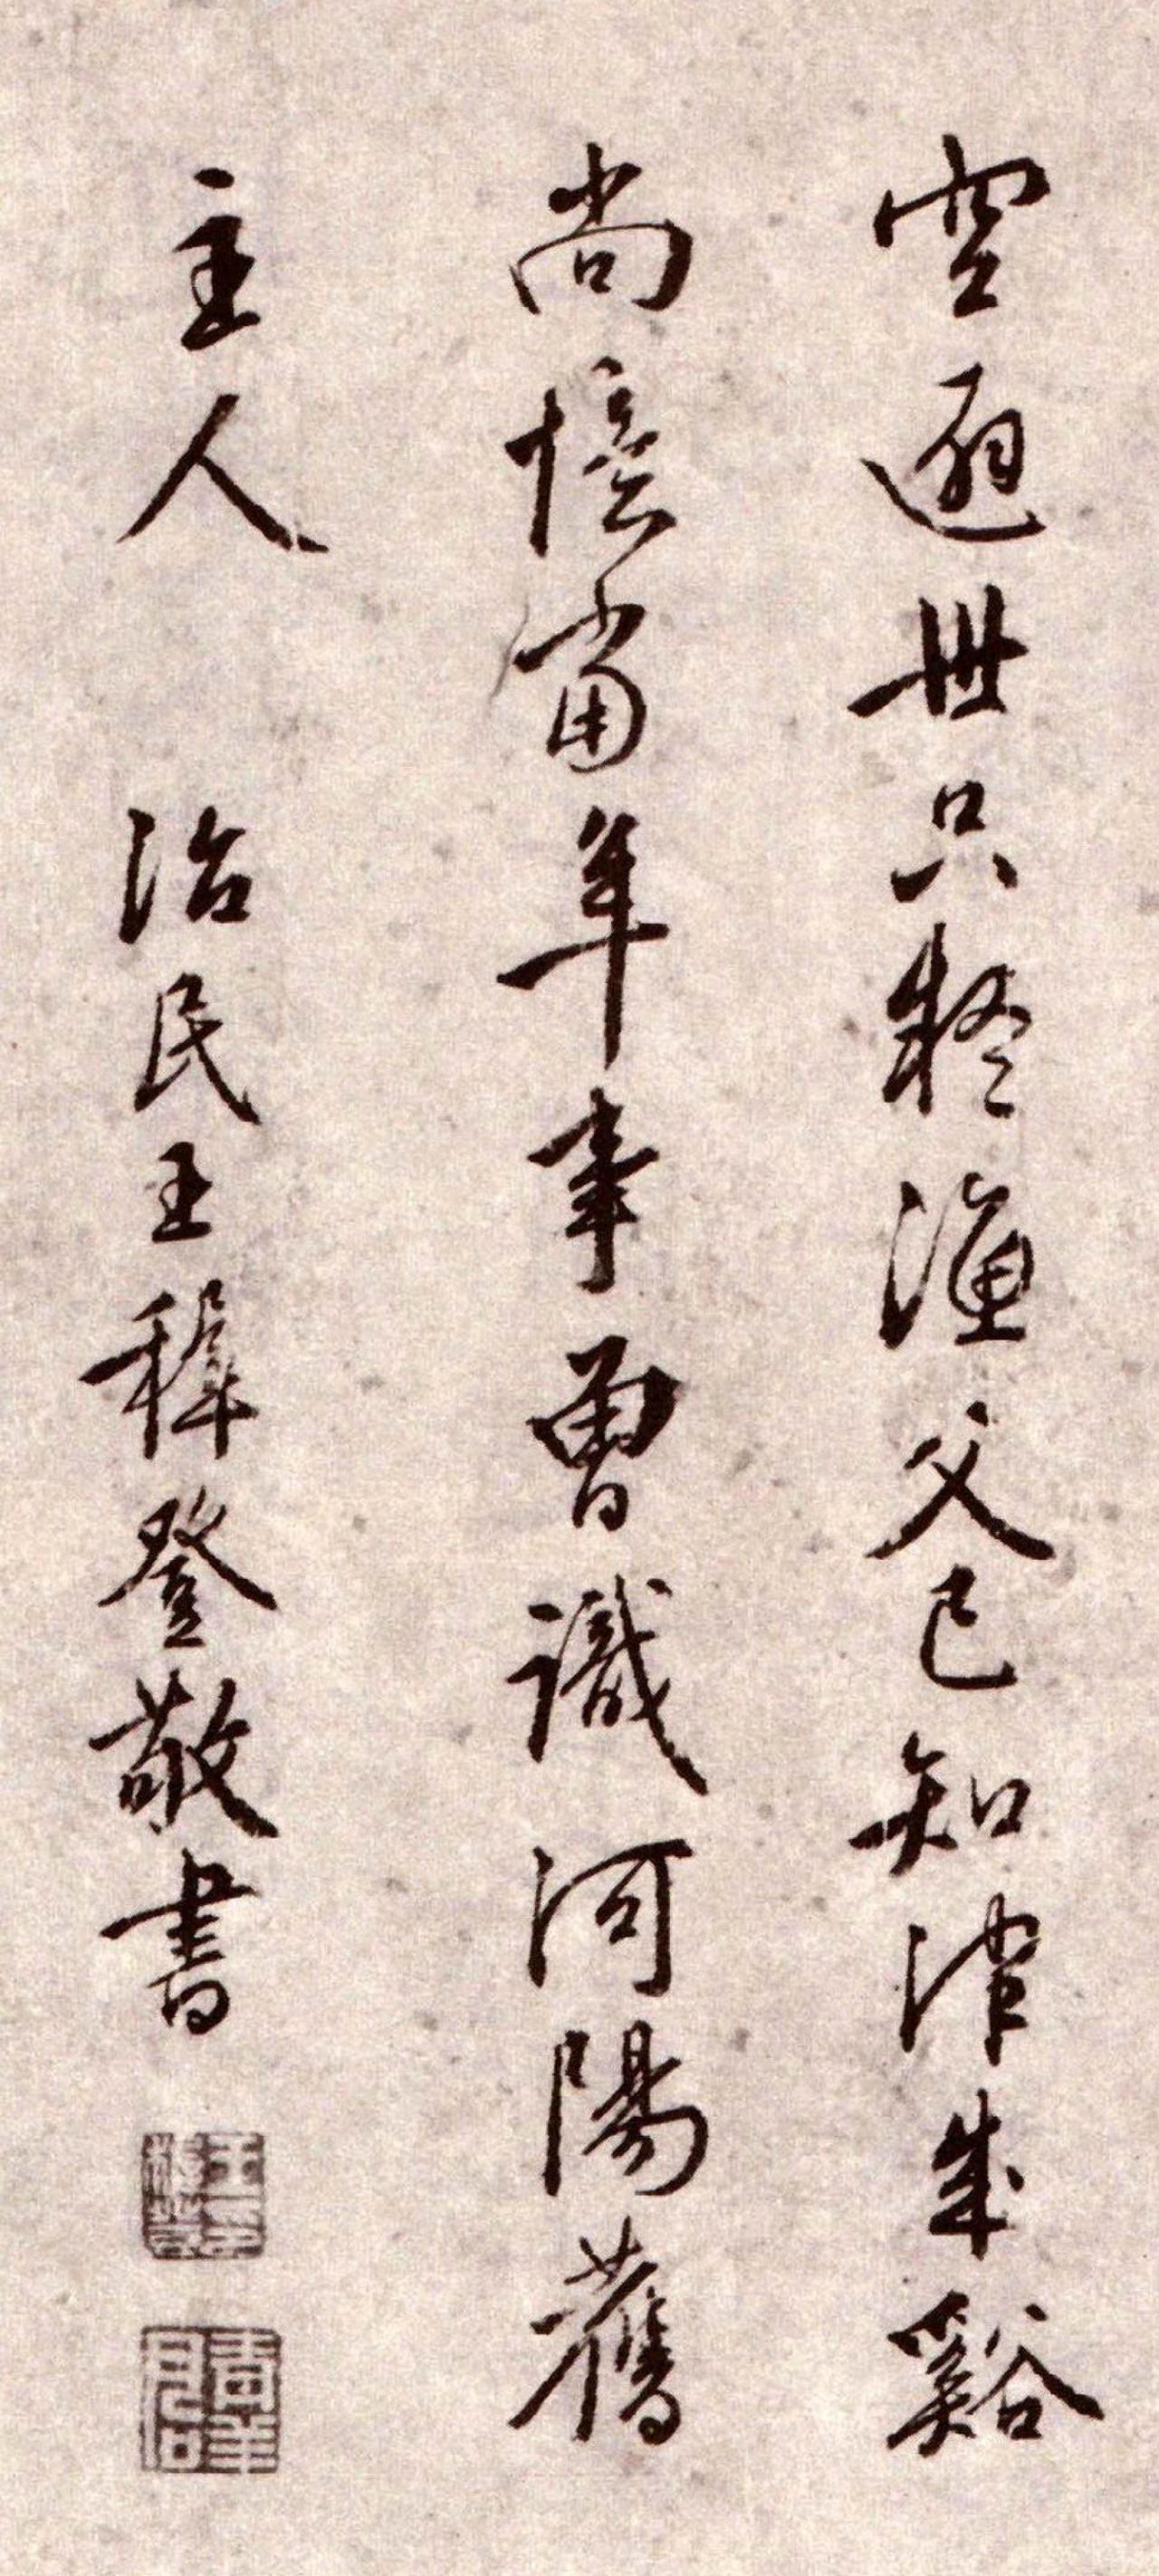 空避世只疑漁父已知津成谿
尚憶當年事曾識河陽舊
主人 治民王穉登敬書
青羊君